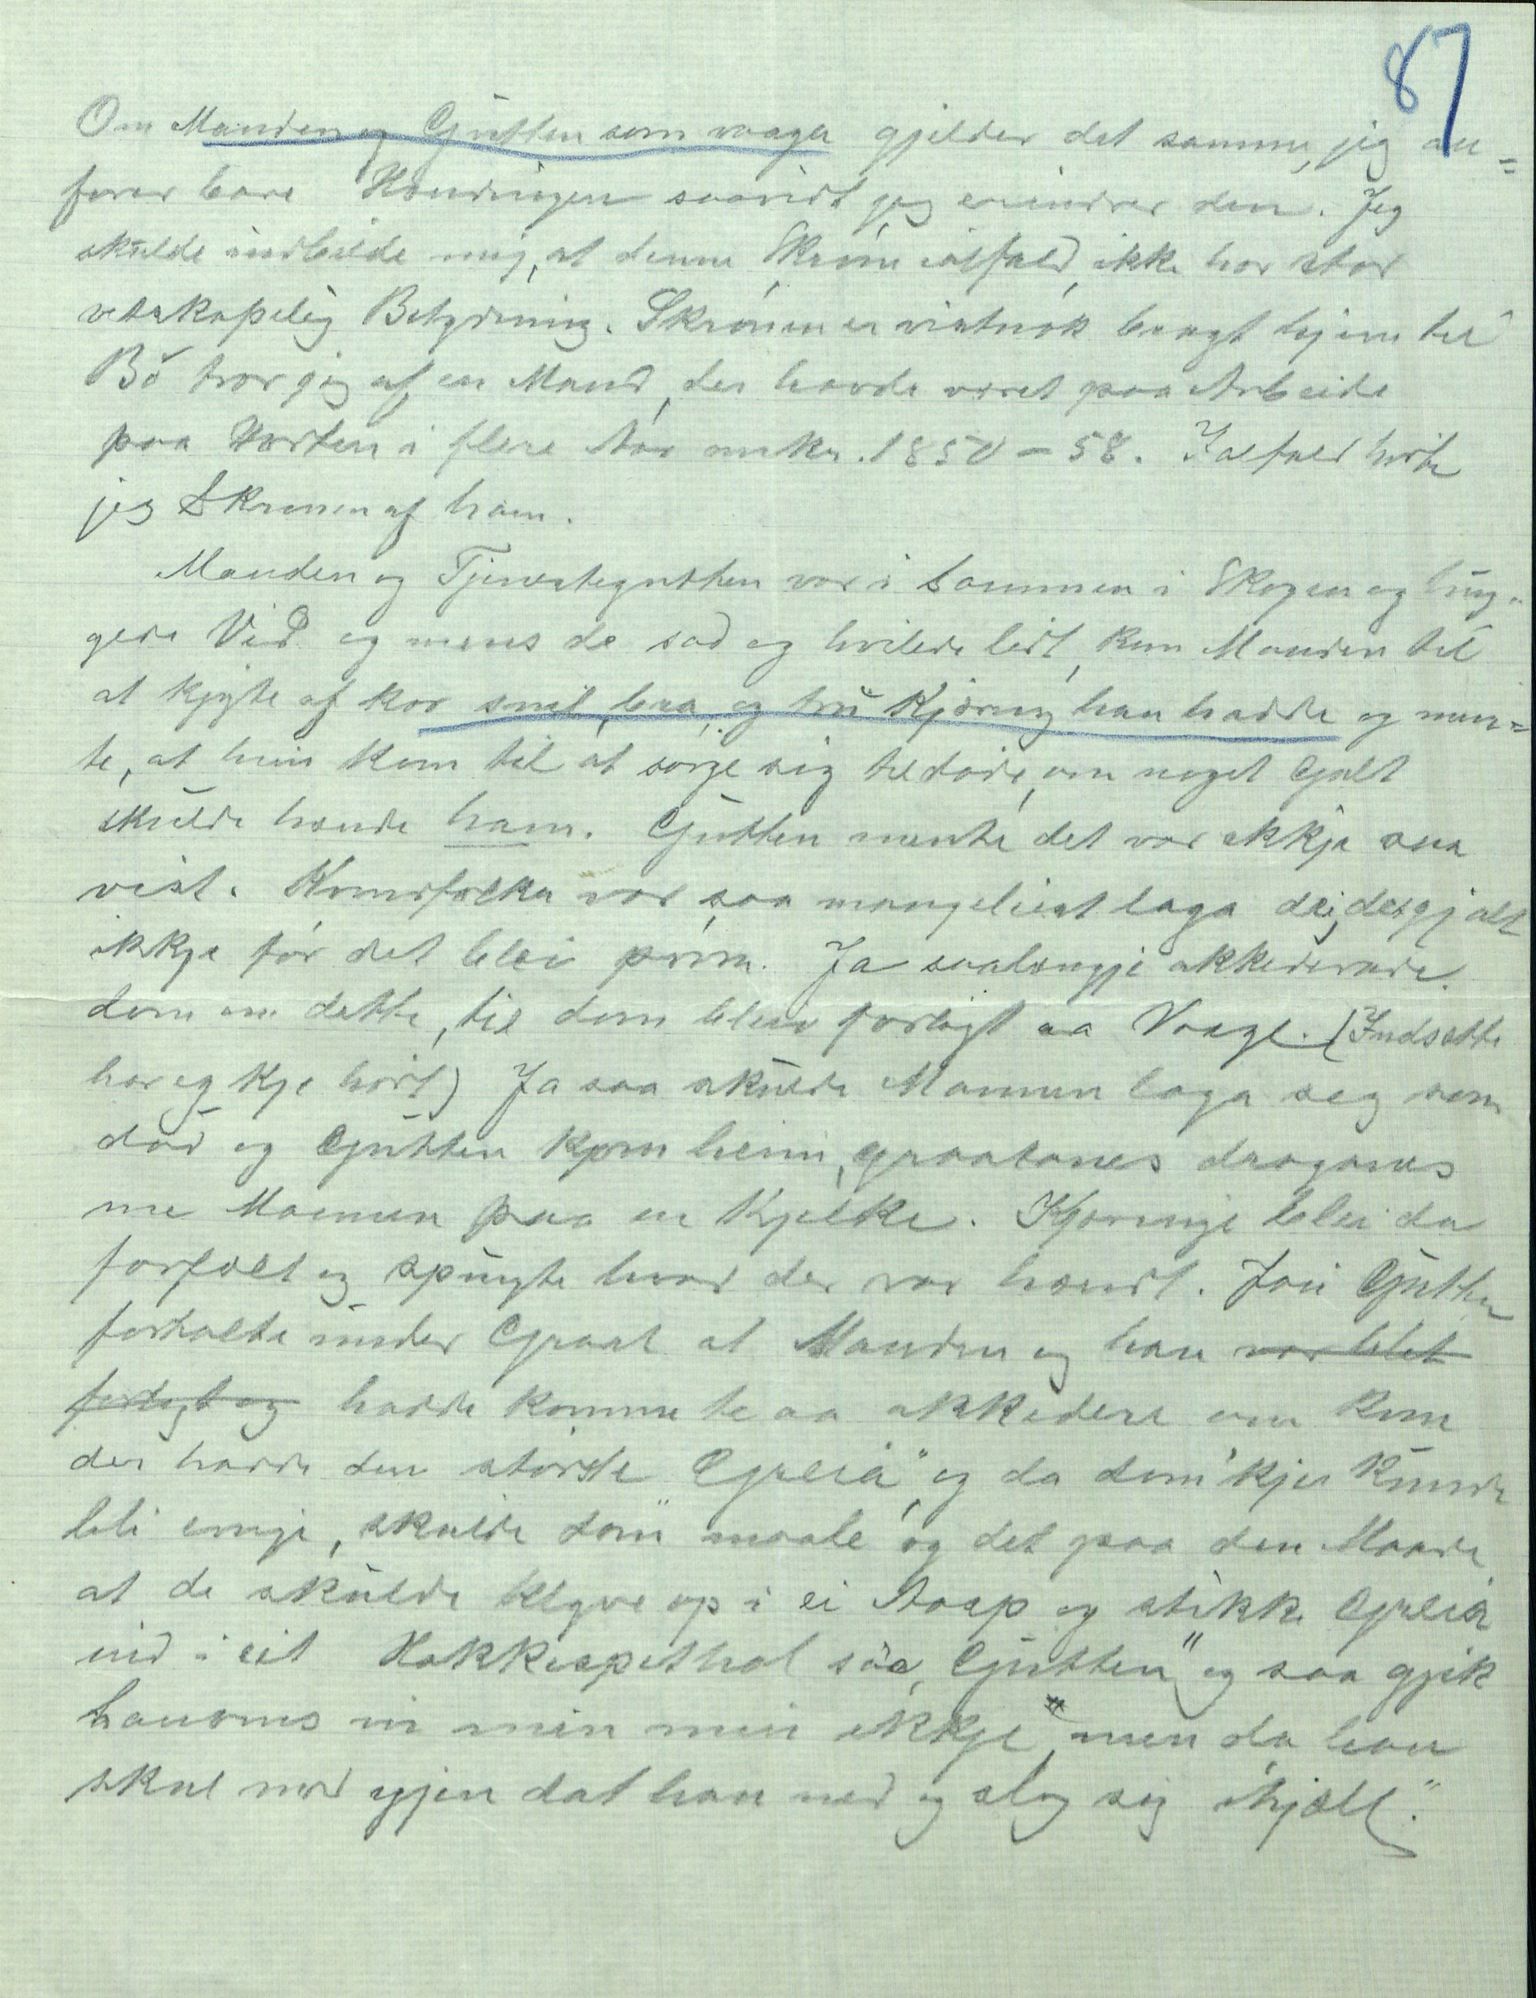 87
Om Manden og Gutten som vaaga gjelder det samme, jeg an=
fører bare Handingen saavidt jeg erindrer den. Jeg
skulde indbilde mig, at denne Skrøne ialfald ikke har stor
vetskapelig Betydning. Skrønen er vistnok bragt hjem til
Bø tror jeg af en Mand, der havde været paa Arbeide
paa Horten i flere Aar omkr. 1850-58. Ialfald hørte
jeg Skrønen af ham.
Manden og Tjenestegutten var i Sammen i Skogen og hug-
gede Ved og mens de sad og hvilede lidt, kom Manden til
at kjyte af kor snil, bra, og tru Kjæring han hadde og men=
te, at hun kom til at sørge sig tildøde, om noget Galt
skulde hænde ham. Gutten mente det var ikkje saa
vist. Kvindfolka var saa mangeleist laga dei, desgjalt
ikkje før det blei prøva. Ja saalængje akkederade
dom om dette, til dom bleiv forligt aa Vaage. (Indsatte
har eg kje hørt) Ja saa skulde Mannen laga seg som
død og Gutten kom heim, graatanes draganes
me Mannen paa en Kjelke. Kjæringe blei da
forfælt og spurgte hvad der var hændt. Joü Gutten
fortalte under Graat at Manden og han var blit
fortegt og hadde komme te aa akkedere om kem
der hadde den største "Greia" og da dom 'kjei kunde
bli enige, skulde dom maale og det paa den Maade,
at de skulde klyve op i ei Aasp og stikke Greia
ind i eit Hakkespethol sa Gutten "og saa gjik
hanoms in min min ikkje" men da han
skul ned igjen dat han ned og slog sig ihjæll."